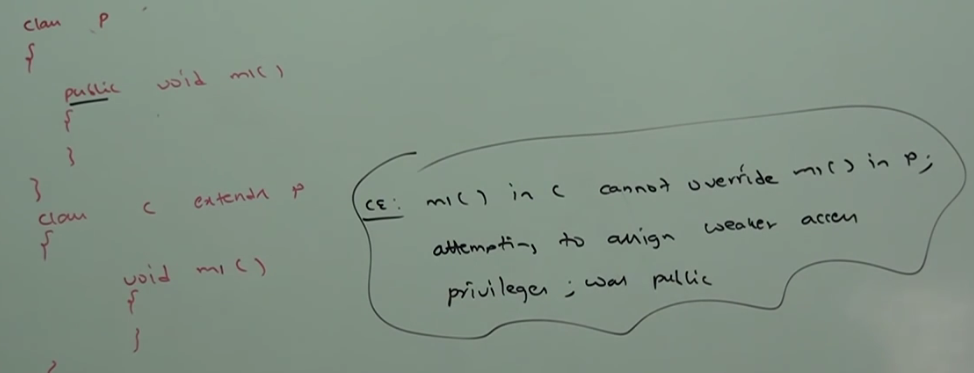 class P
{
public void m1()
{
}
}
class C extends P
{
void m1()
{
}
}
CE: m1() in C cannot override m1() in P;
attempting to assign weaker access
privileges; was public